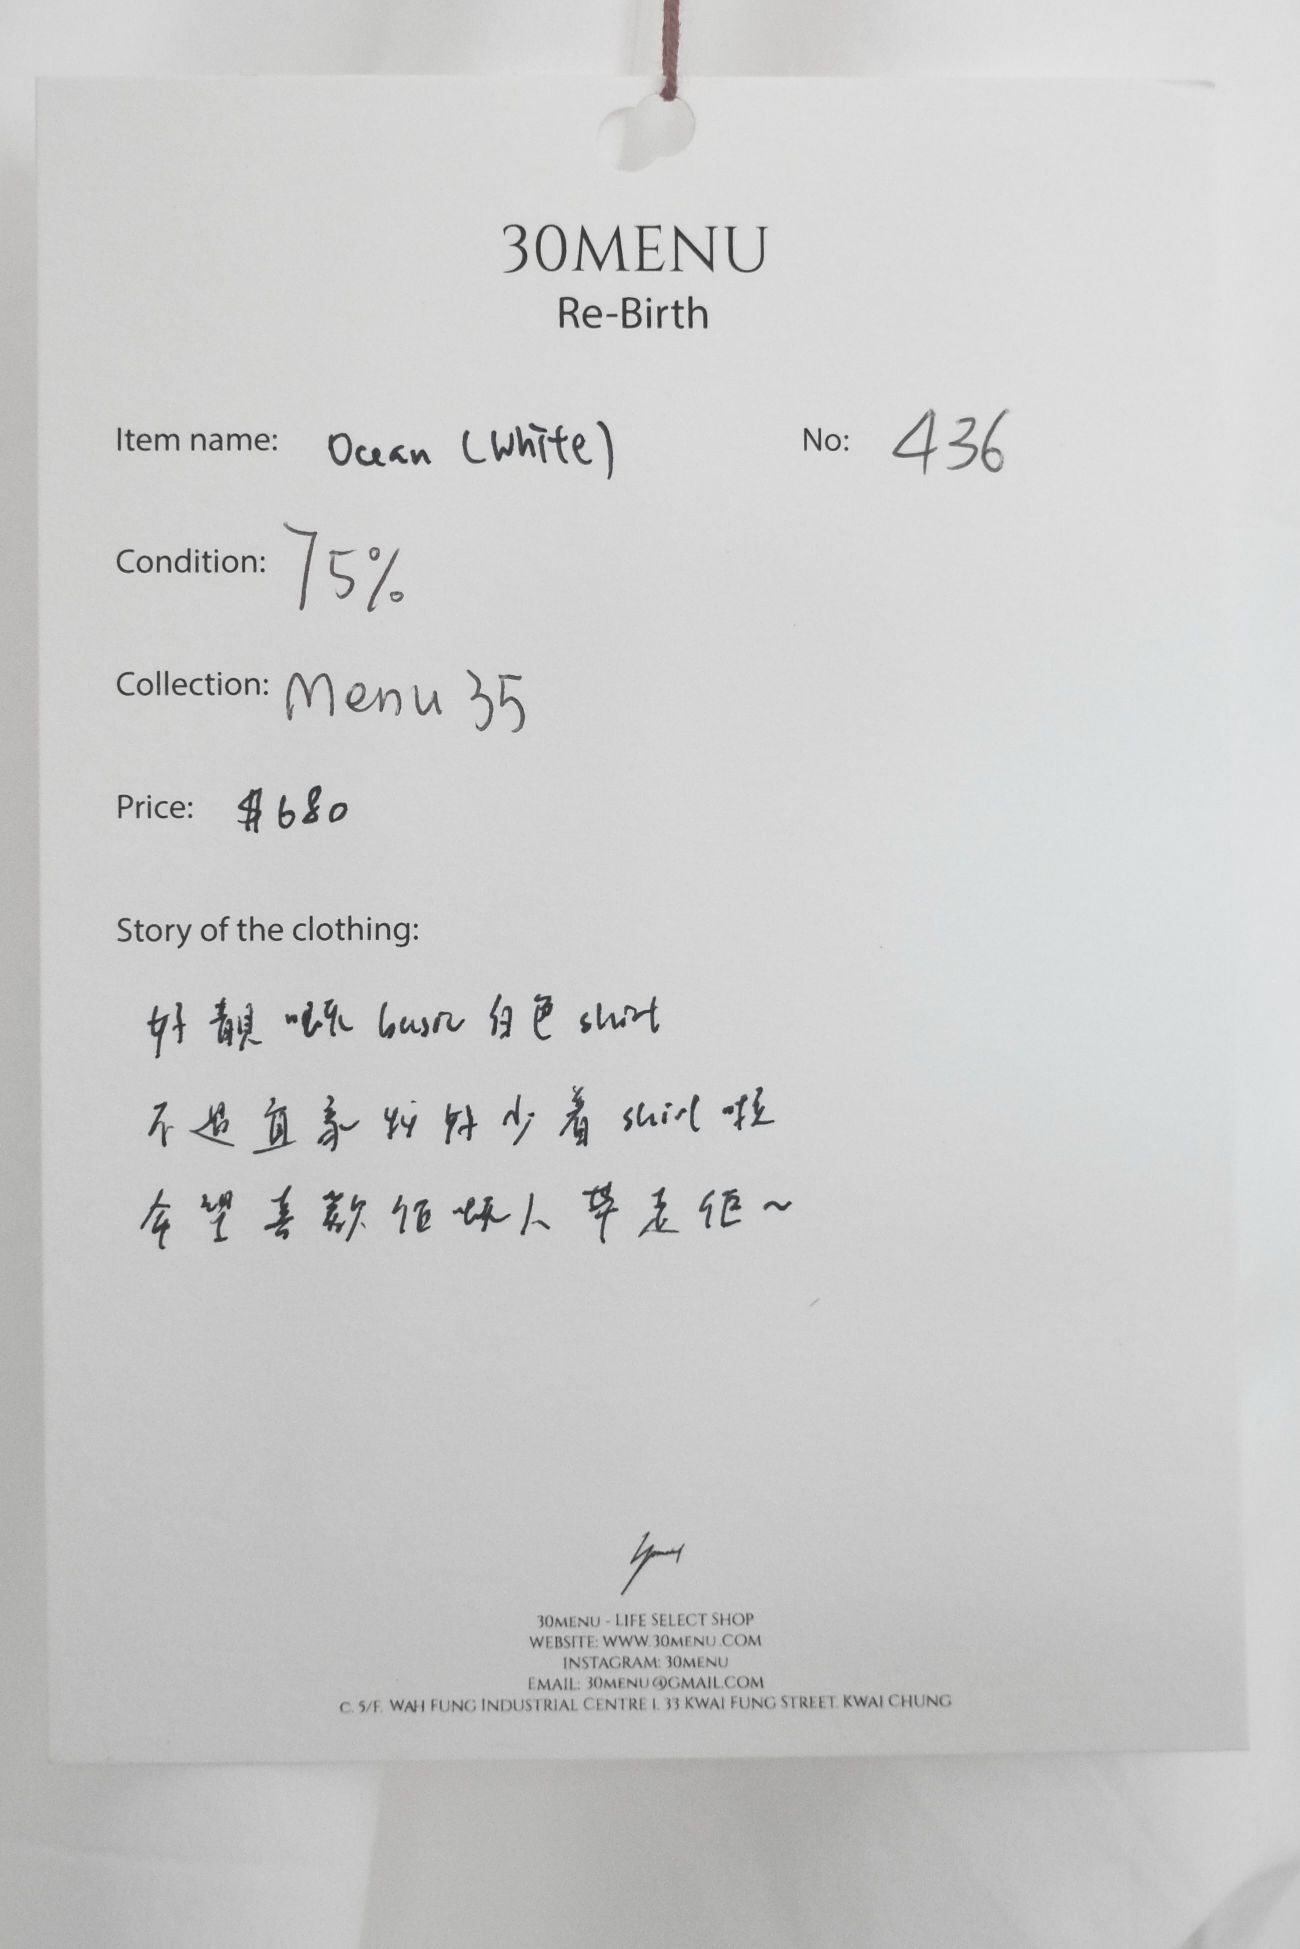 30MENU
Re-Birth
Item name: Ocean (White) No: 436
Condition: 75%
Collection: Menu 35
Price: $680
Story of the clothing:
好靚嘅 basic 白色 shirt
不過宜家 好少着 shirt 啦
希望喜歡佢嘅人帶走佢~
30MENU - LIFE SELECT SHOP
WEBSITE: WWW.30MENU.COM
INSTAGRAM: 30MENU
EMAIL: 30MENU@GMAIL.COM
C, 5/F, WAH FUNG INDUSTRIAL CENTRE I, 33 KWAI FUNG STREET, KWAI CHUNG